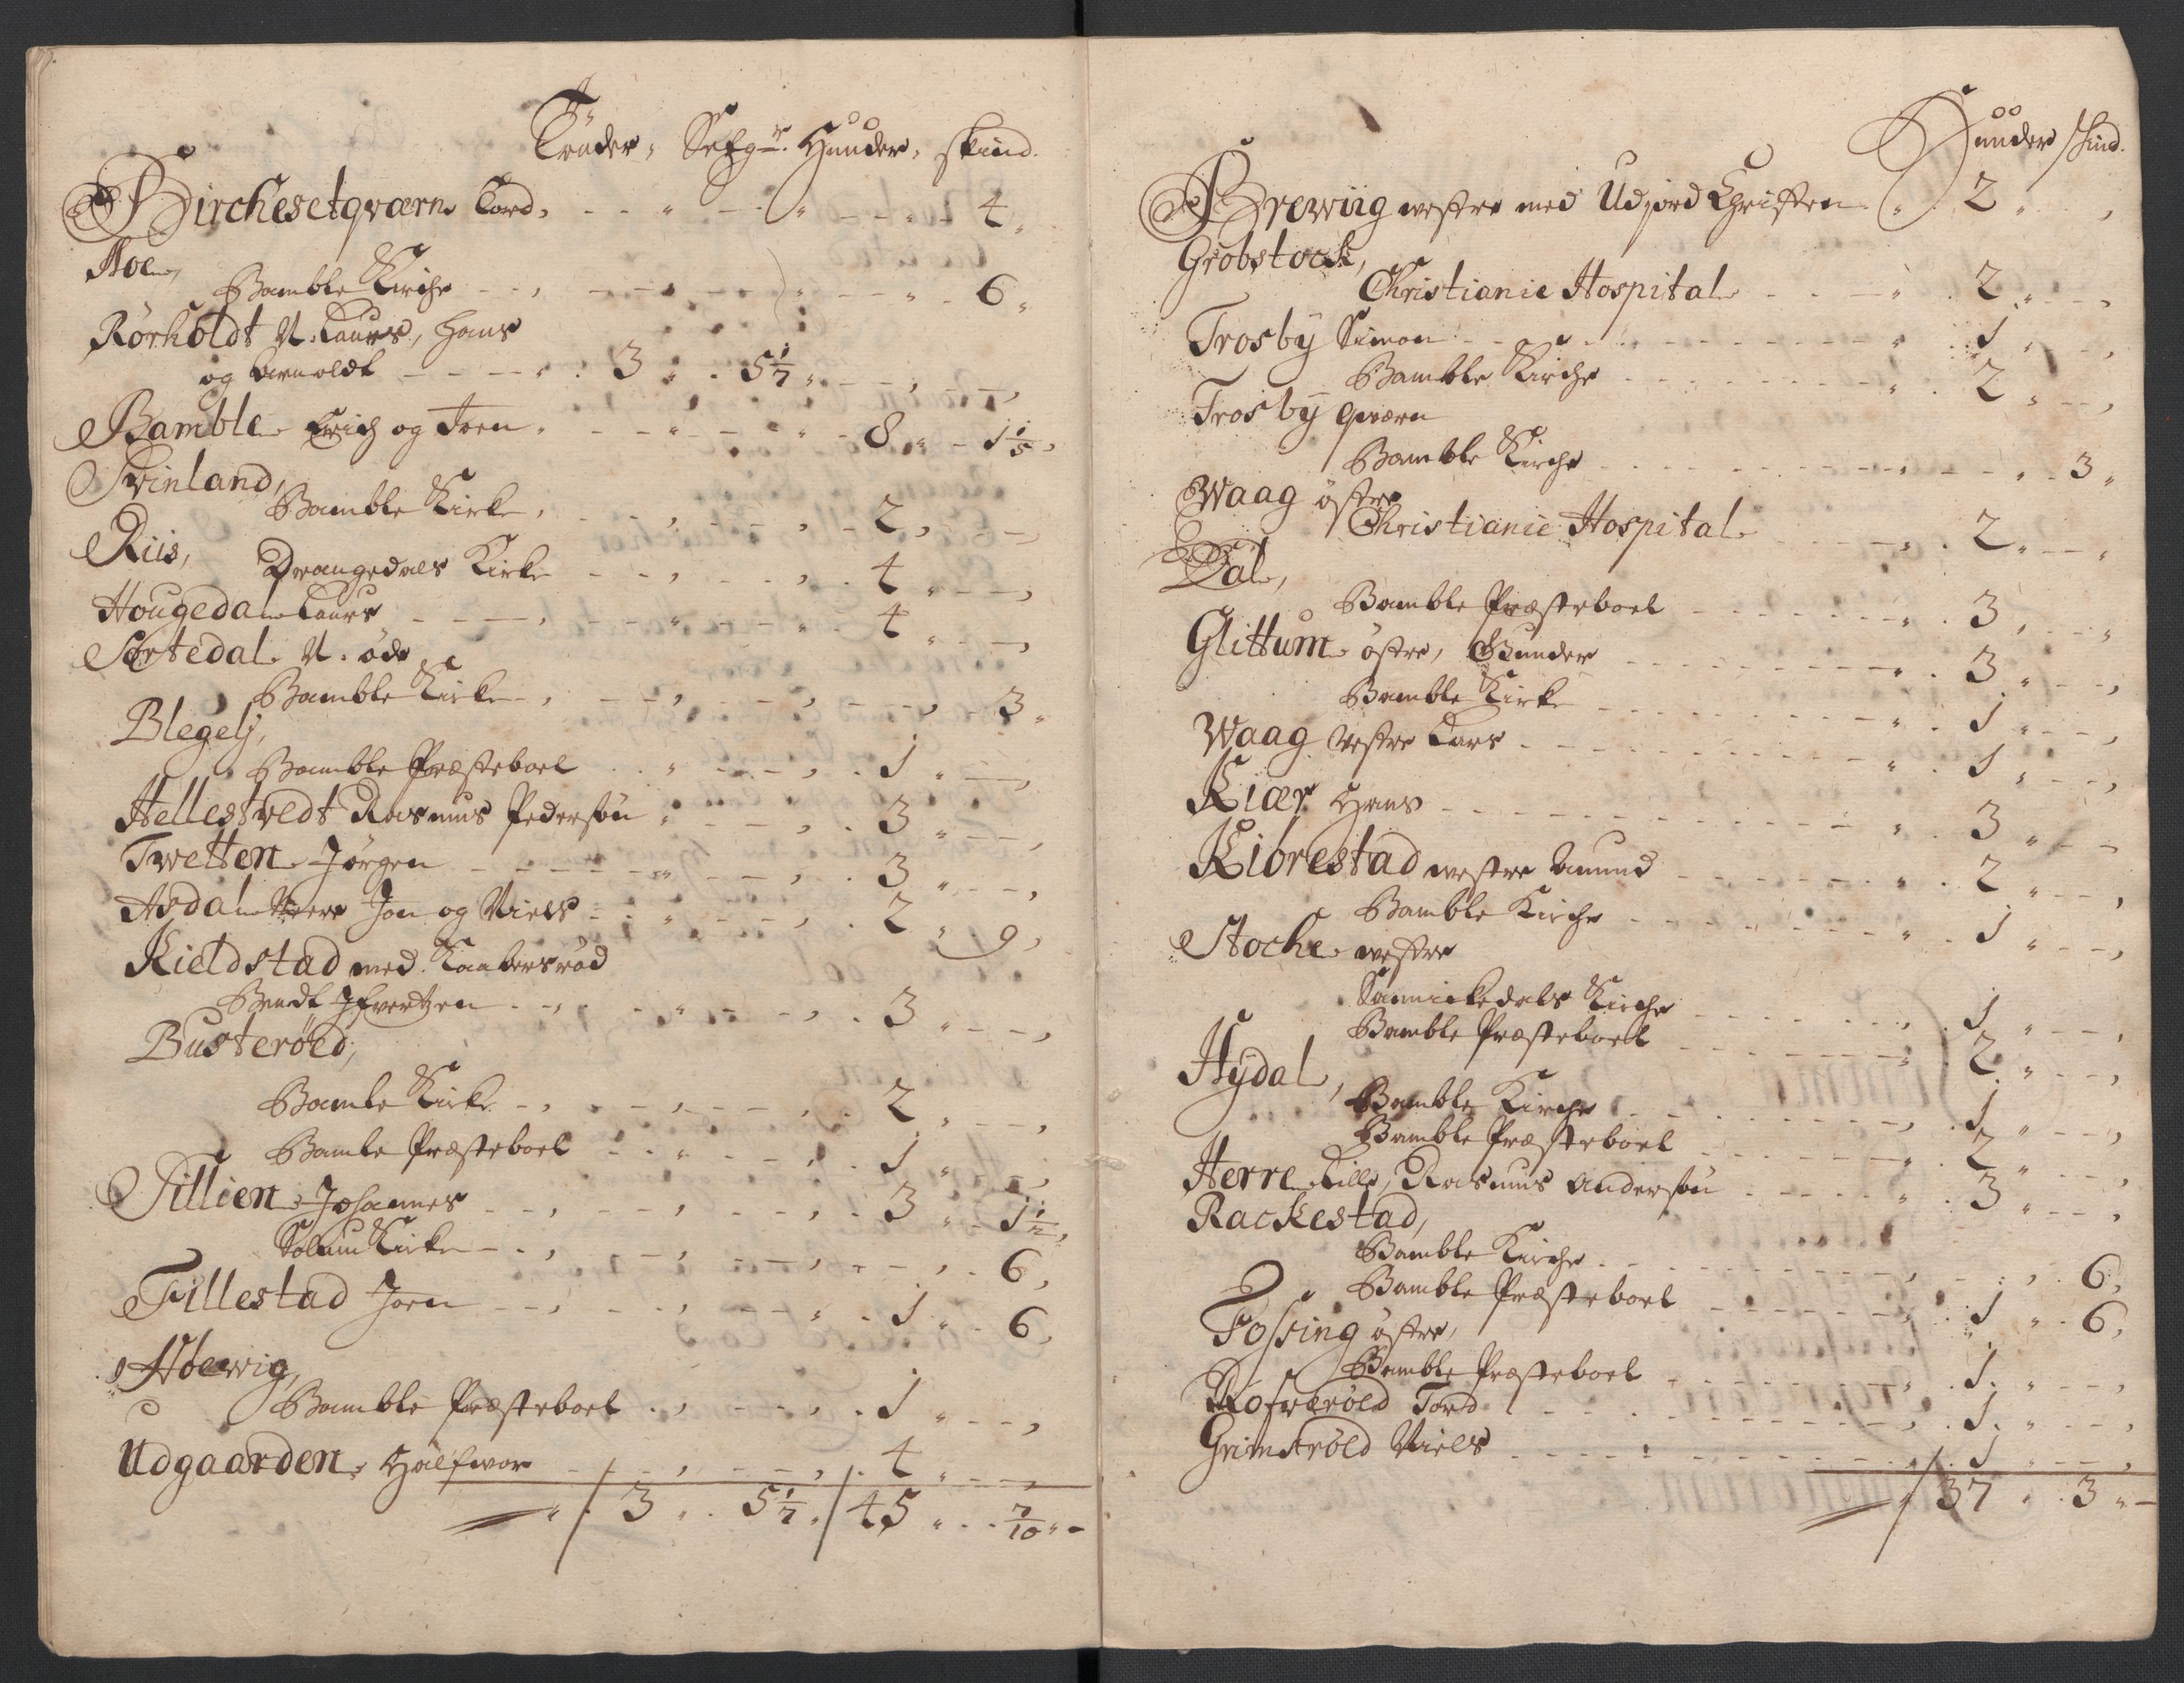 Tønder, Setgr. Hunder, skind.
Birchesetqværn, Tord, - - " - - " - - - 4 "
Noe,
Bamble Kirche - - , - - - - - " - 6 "
Rørholdt N. Laurs, Hans
og Arnoldt - - - - " . 3 " . 5 1/7 " - - , - - ,
Bamble Erich og Iven . - - - " - - " - 8 " - 1 1/5 ,
Svinland,
Bamble Kirke , - - , - - - , - 2 , - -
Riis, Drangedals Kirke - - - , - - , . 4 " - - ,
Hougedal Laurs - - - - , - - " - - " . 4 " - - ,
Sortedal N. øde
Bamble Kirke - , - - , - - , - - , - 3 "
Blegelj,
Bamble Præsteboel . . " - - - , . 1 " - - ,
Hellestvedt Rasmus Pedersøn " - - - , . 3 " - - ,
Twetten Jørgen - - - - - " - - - , . 3 " - - ,
Asdal Jon og Niels - . " - - - , . 2 " 9 ,
Kieldstad med
Bendt Ifvertzen - - , . . " - - - , . 3 " - - ,
Busterøed,
Bamle Kirke - , - - - , - - - , . 2 " - - ,
Bamle Præsteboel - - " - - - , . 1 " - - ,
Tillien Johannes - - - , - - , - - - , . 3 " - 1 1/2 ,
Solum Kirke - - , - - , - - - , - - , - 6 ,
Fillestad Joen - - - , - - , - - - " . 1 " . 6 ,
Høewig,
Bamble Præsteboel . , - - - - , . 1 " - - ,
Udgaarden, Halfwor - - - , - - - , . 4 " - - ,
" . 3 " . 5 1/7 " 45 " . . 7/10 " -
Hunder skind.
Brewiig westre med Udjord Christen " . 2 " ,
Grobstock,
Christianie Hospital - - - - " . 2 " - - ,
Trosby Simon - - - - - - - - - " . 1 " - - ,
Bamble Kirche - - - - - - - " . 2 " - - ,
Trosby qværn
Bamble Kirche - - - - - - - - " - - " . 3 "
Waag østre
Christianie Hospital - - - - , . 2 " - - "
Dal,
Bamble Præsteboel - - - - - - " . 3 , - - "
Glittum østre, Gunder - - - - - - - - " . 3 " - - ,
Bamble Kirke - - - - - - - - " . 1 " - - ,
Waag Vestre Lars - - - - - - - - - " . 1 " - - ,
Kiær Hans - - - - - - - - - - " . 3 " - -
Kiørestad westre Amund - - - - - - " . 2 " - - ,
Bamble Kirche - - - - - - - " . 1 " - - ,
Stocke westre
Sannickedals Kirche - - - - - - , . 1 " - - ,
Bamble Præsteboel - - - - - - " 2 " - - ,
Hydal,
Bamble Kirche - - - - - - - , . 1 " - - ,
Bamble Præsteboel - - - - - - " . 2 " - - ,
Herre Lille, Rasmus Andersøn - - - - - " . 3 " - - ,
Rackestad,
Bamble Kirche - - - - - - - - , - . , . 6 ,
Bamble Præsteboel - - - - - - " . 1 " . 6 ,
Fossing østre,
Bamble Præsteboel - - - - - - - " . 1 . " - - ,
Rofverøed Tord - - - - - - - - - , . 1 . " - - ,
Grimsrøed Niels - - - - - - - - - - " . 1 " - - ,
" 37 " . 3 " -